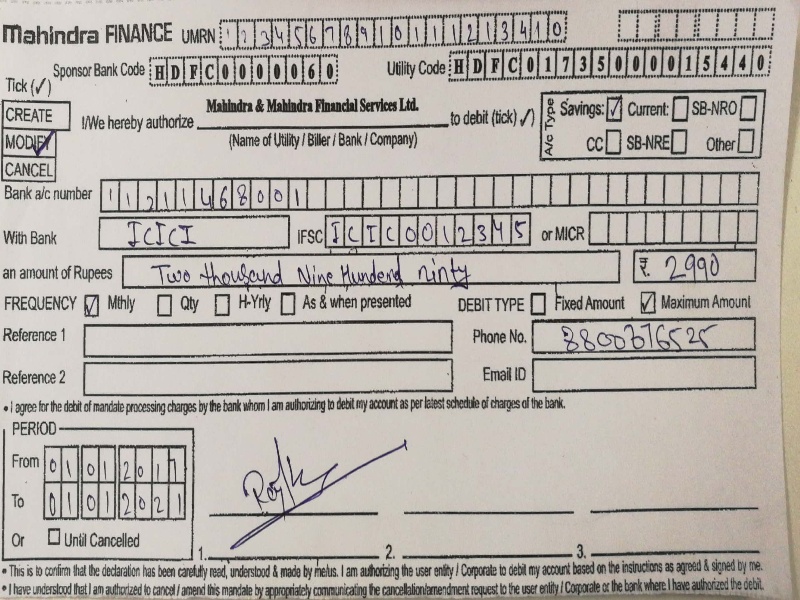 Mahindra FINANCE UMRN 12345678910111213410
Sponsor Bank Code HDFC0000060 Utility Code HDFC01735000015440
Tick (✓)
CREATE
MODIFY
CANCEL
I/We hereby authorize Mahindra & Mahindra Financial Services Ltd. to debit (tick ✓)
(Name of Utility / Biller / Bank / Company)
A/c Type Savings: ✓ Current: SB-NRO
CC SB-NRE Other
Bank a/c number 11211468001
With Bank ICICI IFSC ICIC0012345 or MICR
an amount of Rupees Two thousand Nine Hunderd ninty ₹. 2990
FREQUENCY ✓ Mthly Qty H-Yrly As & when presented DEBIT TYPE Fixed Amount ✓ Maximum Amount
Reference 1 Phone No. 8800376525
Reference 2 Email ID
• I agree for the debit of mandate processing charges by the bank whom I am authorizing to debit my account as per latest schedule of charges of the bank.
PERIOD
From 01012017
To 01012021
Or Until Cancelled
1. 2. 3.
• This is to confirm that the declaration has been carefully read, understood & made by me/us. I am authorizing the user entity / Corporate to debit my account based on the instructions as agreed & signed by me.
• I have understood that I am authorized to cancel / amend this mandate by appropriately communicating the cancellation/amendment request to the user entity / Corporate or the bank where I have authorized the debit.